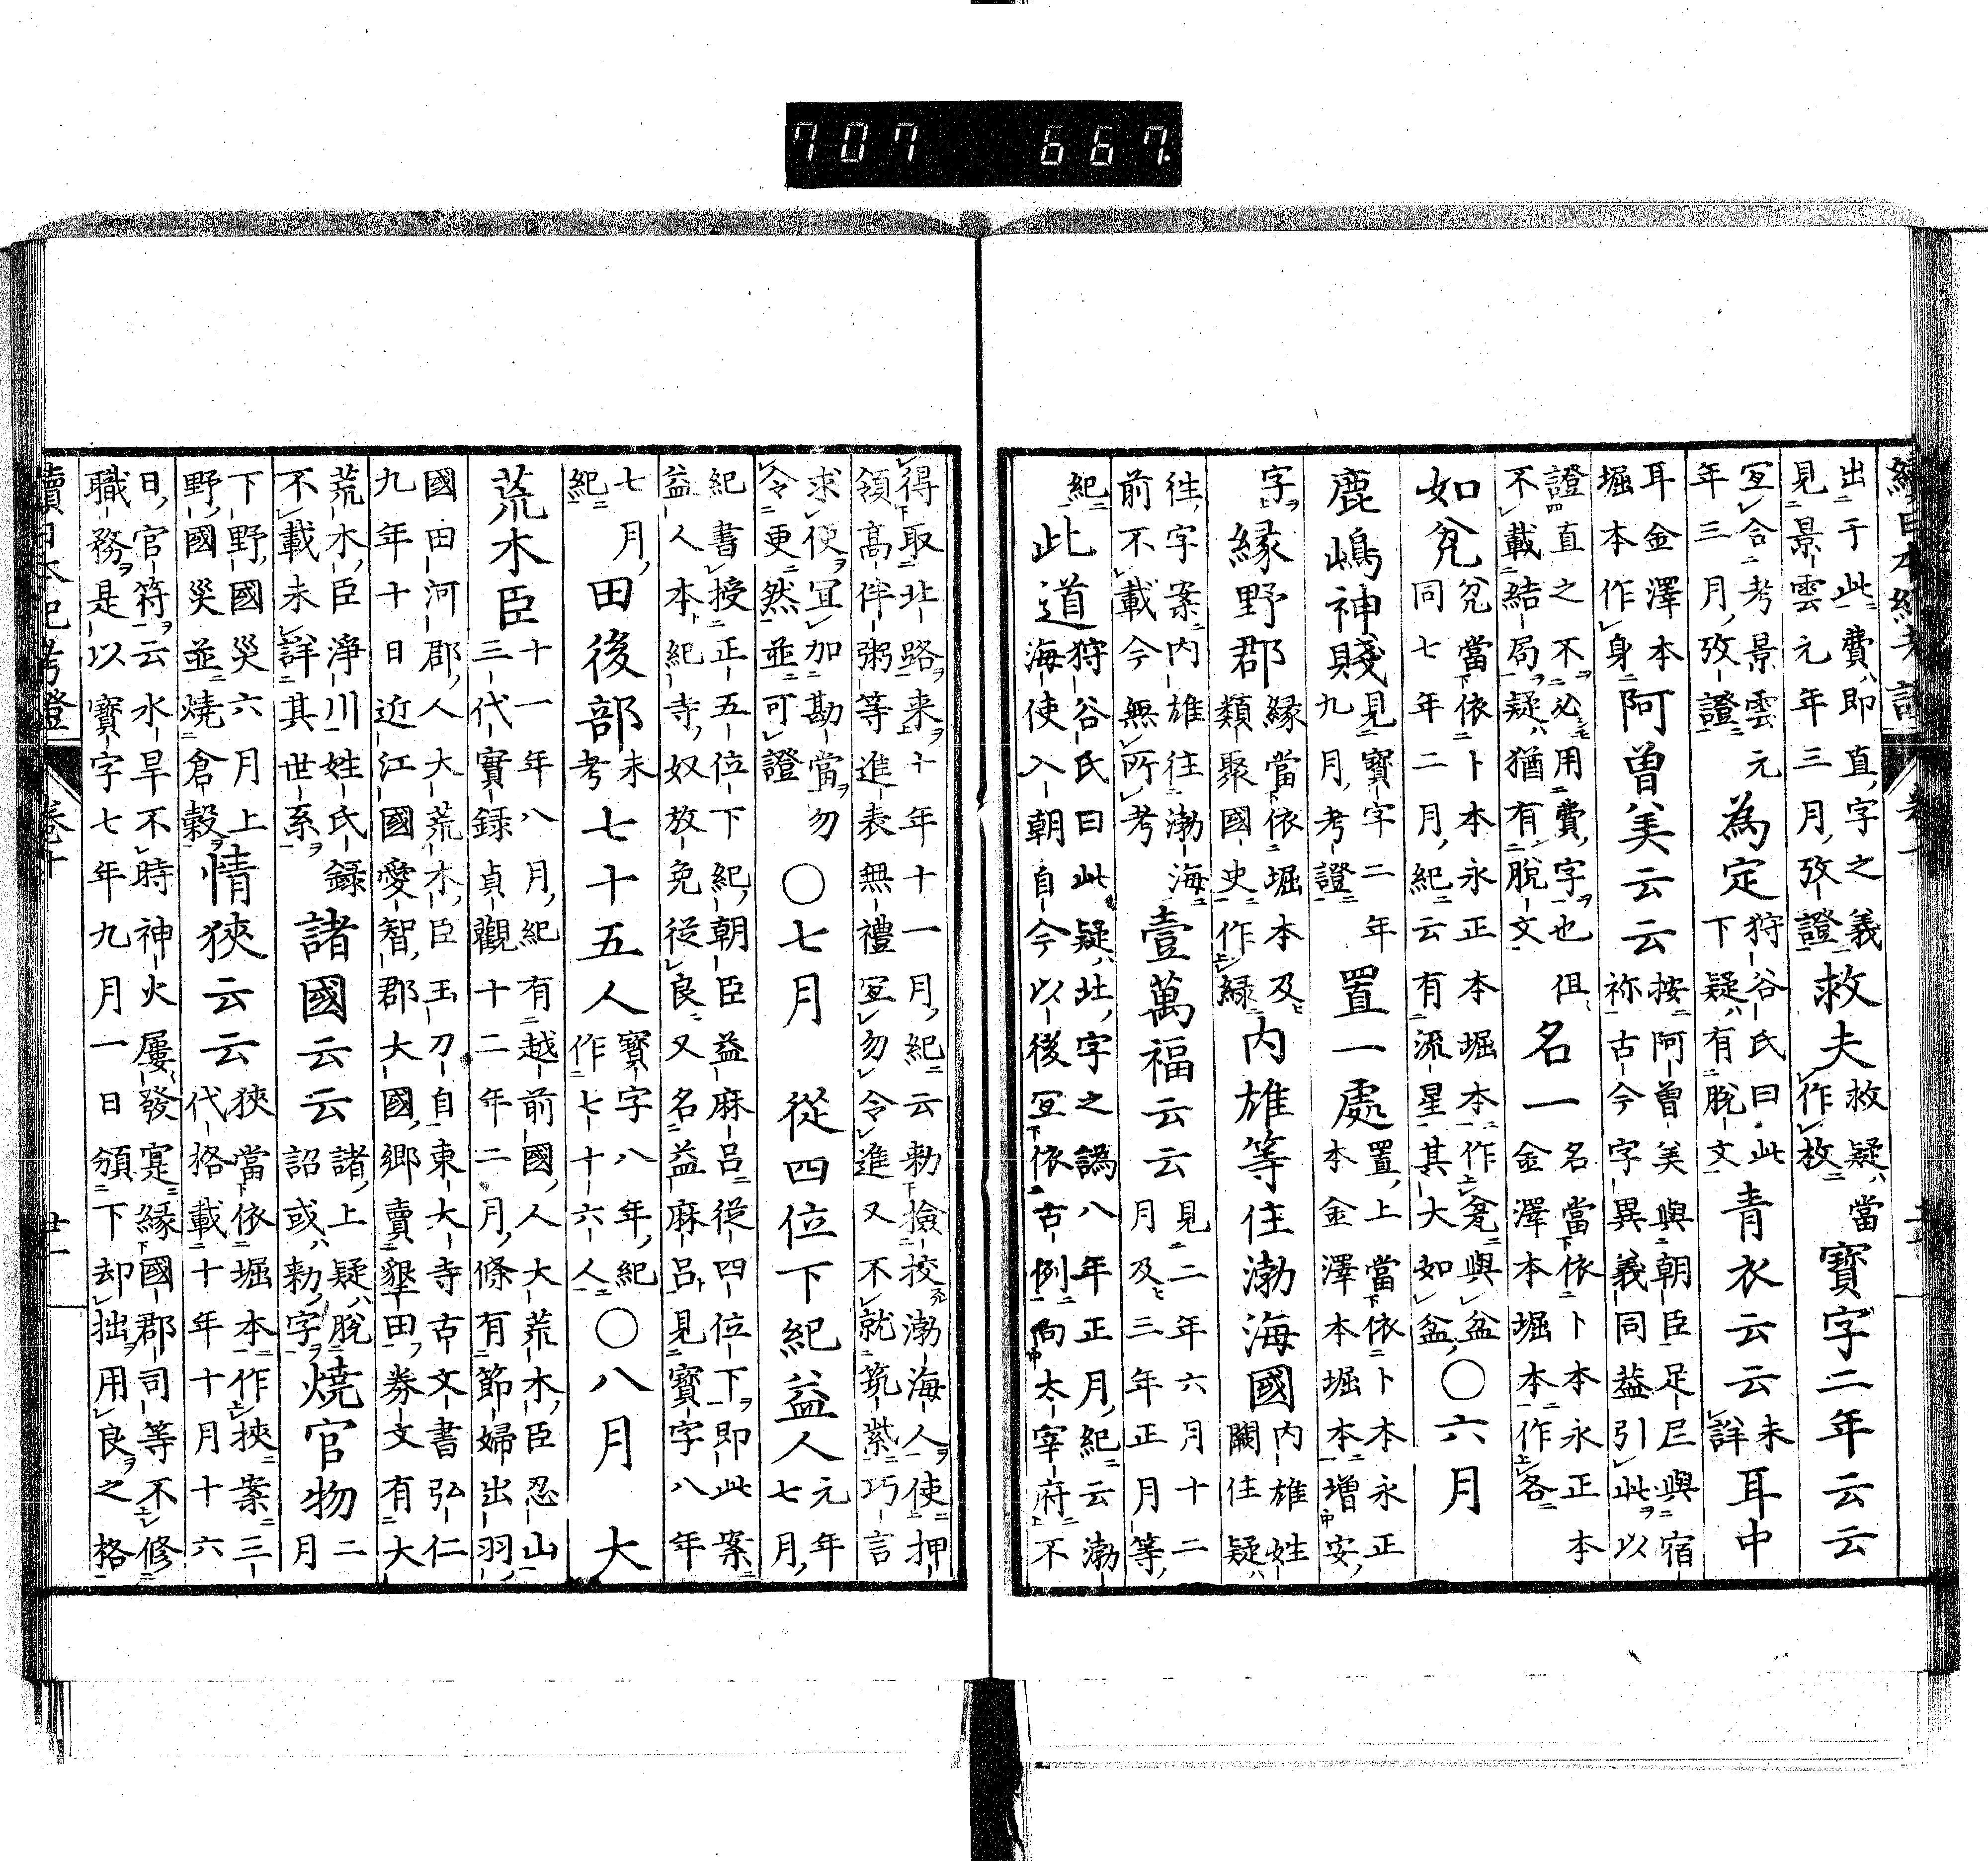 707 667.
續日本紀考證
出于此費即直字之義
見景雲元年三月攷證
救夫
救疑當
作枚
寶字二年云云
宜合考景雲元
年三月攷證
為定
狩谷氏曰此
下疑有脫文
青衣云云
未
詳
耳中
耳金澤本
堀本作身
阿曾美云云
按阿曾美與朝臣足尼與宿
祢古今字異義同益引此以
證直之不必用費字也
不載結局疑猶有脫文
名一
名當依卜本永正本
金澤本堀本作各
如兊
兊當依卜本永正本堀本作㽅與盆
同七年二月紀云有流星其大如盆
○六月
鹿嶋神賤
見寶字二年
九月考證
置一處
置上當依卜本永正
本金澤本堀本增安
字
緣野郡
緣當依堀本及
類聚國史作綠
內雄等住渤海國
內雄姓
闕住疑
往字案內雄往渤海
前不載今無所考
壹萬福云云
見二年六月十二
月及三年正月等
紀
此道
狩谷氏曰此疑北字之譌八年正月紀云渤
海使入朝自今以後宜依古例向太宰府不
得取北路来十年十一月紀云勅撿挍渤海人使押
領高伴粥等進表無禮宜勿令進又不就筑紫巧言
求便宜加勘當勿
令更然並可證
○七月
從四位下紀益人
元年
七月
紀書授正五位下紀朝臣益麻呂從四位下即此案
益人本紀寺奴放免從良又名益麻呂見寶字八年
七月
紀
田後部
未
考
七十五人
寶字八年紀
作七十六人
○八月
大
荒木臣
十一年八月紀有越前國人大荒木臣忍山
三代實録貞觀十二年二月條有節婦出羽
國田河郡人大荒木臣玉刀自東大寺古文書弘仁
九年十日近江國愛智郡大國鄉賣墾田券文有大
荒木臣淨川姓氏録
不載未詳其世系
諸國云云
諸上疑脫
詔或勅字
燒官物
二
月
下野國災六月上
野國災並燒倉穀
情狹云云
狹當依堀本作挾案三
代格載十年十月十六
日官符云水旱不時神火屢發寔緣國郡司等不修
職務是以寶字七年九月一日頒下却拙用良之格
續日本紀考證
卷十
廿一